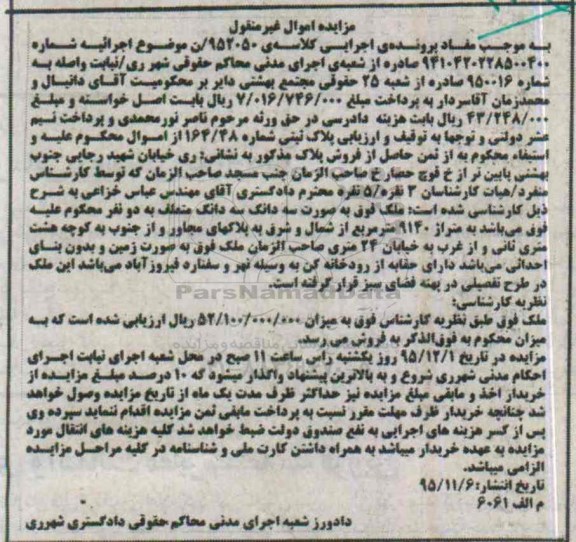 مزایده اموال غیرمنقول
به موجب مفاد پرونده‌ی اجرایی کلاسه‌ی ۹۵۲۰۵۰/ن موضوع اجرائیه شماره
۹۴۱۰۴۲۰۲۲۸۵۰۰۴۰۰ صادره از شعبه‌ی اجرای مدنی محاکم حقوقی شهر ری/نیابت واصله به
شماره ۹۵۰۰۱۶ صادره از شعبه ۲۵ حقوقی مجتمع بهشتی دایر بر محکومیت آقای دانیال و
محمدزمان آقاسردار به پرداخت مبلغ ۷/۰۱۶/۷۴۶/۰۰۰ ریال بابت اصل خواسته و مبلغ
۴۳/۲۴۸/۰۰۰ ریال بابت هزینه دادرسی در حق ورثه مرحوم ناصر نورمحمدی و پرداخت نیم
عشر دولتی و توجها به توقیف و ارزیابی پلاک ثبتی شماره ۱۶۴/۴۸ از اموال محکوم علیه و
استیفاء محکوم به از ثمن حاصل از فروش پلاک مذکور به نشانی: ری خیابان شهید رجایی جنوب
بهشتی پایین تر از خ قوچ حصار خ صاحب الزمان جنب مسجد صاحب الزمان که توسط کارشناس
منفرد/هیات کارشناسان ۳ نفره/۵ نفره محترم دادگستری آقای مهندس عباس خزاعی به شرح
ذیل کارشناسی شده است: ملک فوق به صورت سه دانگ سه دانگ متعلق به دو نفر محکوم علیه
فوق می‌باشد به متراژ ۹۱۴۰ مترمربع از شمال و شرق به پلاکهای مجاور و از جنوب به کوچه هشت
متری ثانی و از غرب به خیابان ۲۴ متری صاحب الزمان ملک فوق به صورت زمین و بدون بنای
احداثی می‌باشد دارای حقابه از رودخانه کن به وسیله نهر و سفتاره فیروزآباد می‌باشد این ملک
در طرح تفصیلی در پهنه فضای سبز قرار گرفته است.
ParsNamadData
نظریه کارشناسی:
ملک فوق طبق نظریه کارشناس فوق به میزان ۵۴/۱۰۰/۰۰۰/۰۰۰ ریال ارزیابی شده است که به
میزان محکوم به فوق‌الذکر به فروش می رسد.
مزایده در تاریخ ۹۵/۱۲/۱ روز یکشنبه راس ساعت ۱۱ صبح در محل شعبه اجرای نیابت اجرای
احکام مدنی شهرری شروع و به بالاترین پیشنهاد واگذار میشود که ۱۰ درصد مبلغ مزایده از
خریدار اخذ و مابقی مبلغ مزایده نیز حداکثر ظرف مدت یک ماه از تاریخ مزایده وصول خواهد
شد چنانچه خریدار ظرف مهلت مقرر نسبت به پرداخت مابقی ثمن مزایده اقدام ننماید سپرده وی
پس از کسر هزینه های اجرایی به نفع صندوق دولت ضبط خواهد شد کلیه هزینه های انتقال مورد
مزایده به عهده خریدار میباشد به همراه داشتن کارت ملی و شناسنامه در کلیه مراحل مزایده
الزامی میباشد.
تاریخ انتشار: ۹۵/۱۱/۶
م الف ۶۰۶۱
دادورز شعبه اجرای مدنی محاکم حقوقی دادگستری شهرری